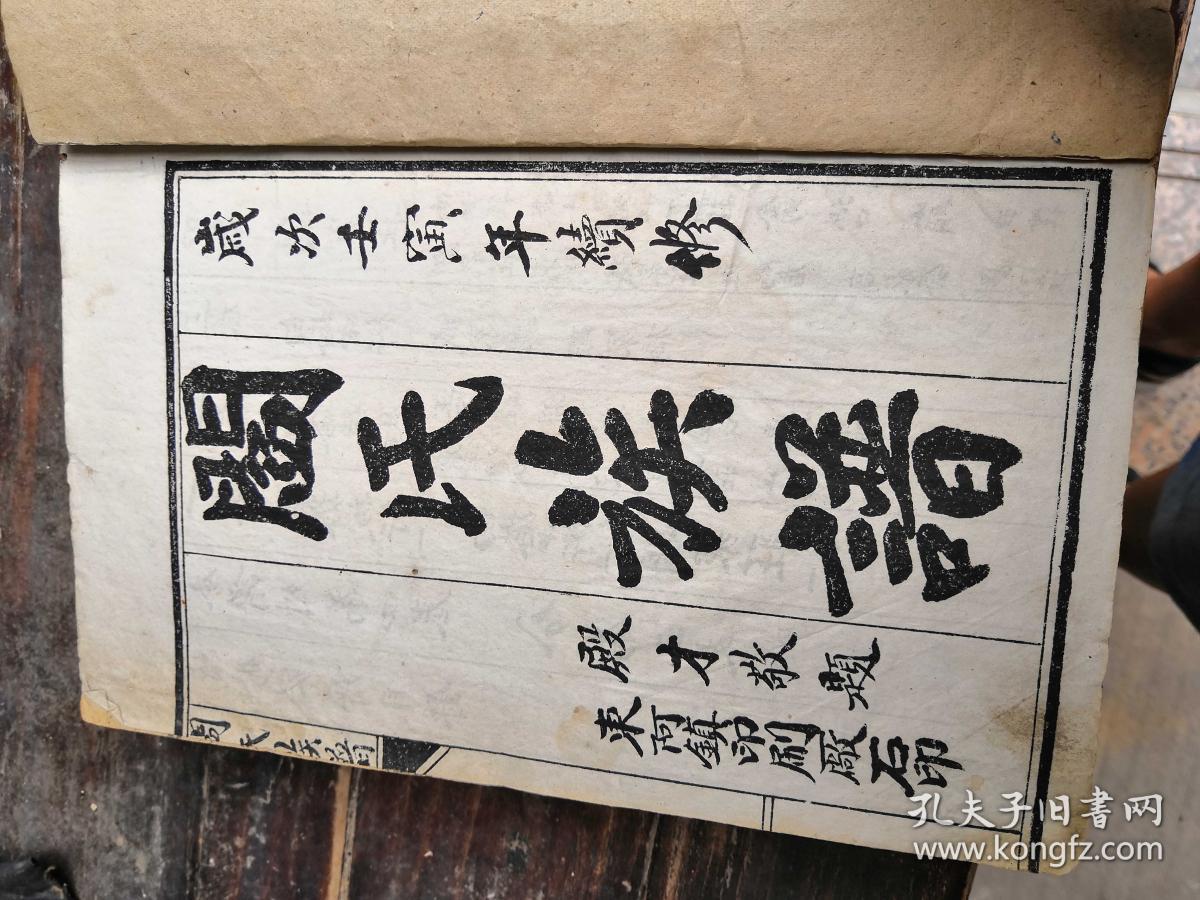 歲次壬寅年續修
氏族譜
殿才敬題
東阿鎮印刷廠石印
氏族譜
孔夫子旧书网
www.kongfz.com